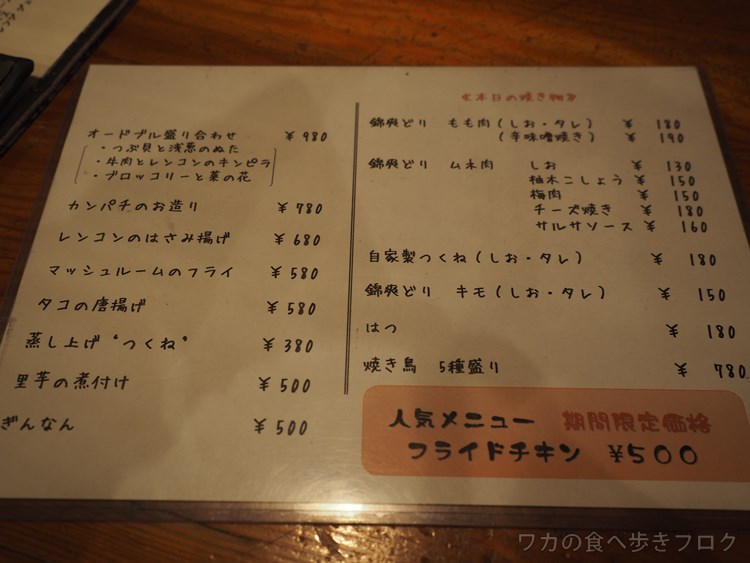 オードブル盛り合わせ ¥980
・つぶ貝と浅葱のぬた
・牛肉とレンコンのキンピラ
・ブロッコリーと菜の花
カンパチのお造り ¥780
レンコンのはさみ揚げ ¥680
マッシュルームのフライ ¥580
タコの唐揚げ ¥580
蒸し上げ“つくね” ¥380
里芋の煮付け ¥500
ぎんなん ¥500
《本日の焼き物》
錦爽どり もも肉(しお・タレ) ¥180
(辛味噌焼き) ¥190
錦爽どり ムネ肉 しお ¥130
柚木こしょう ¥150
梅肉 ¥150
チーズ焼き ¥180
サルサソース ¥160
自家製つくね(しお・タレ) ¥180
錦爽どり キモ(しお・タレ) ¥150
はつ ¥180
焼き鳥 5種盛り ¥780
人気メニュー 期間限定価格
フライドチキン ¥500
ワカの食べ歩きブログ